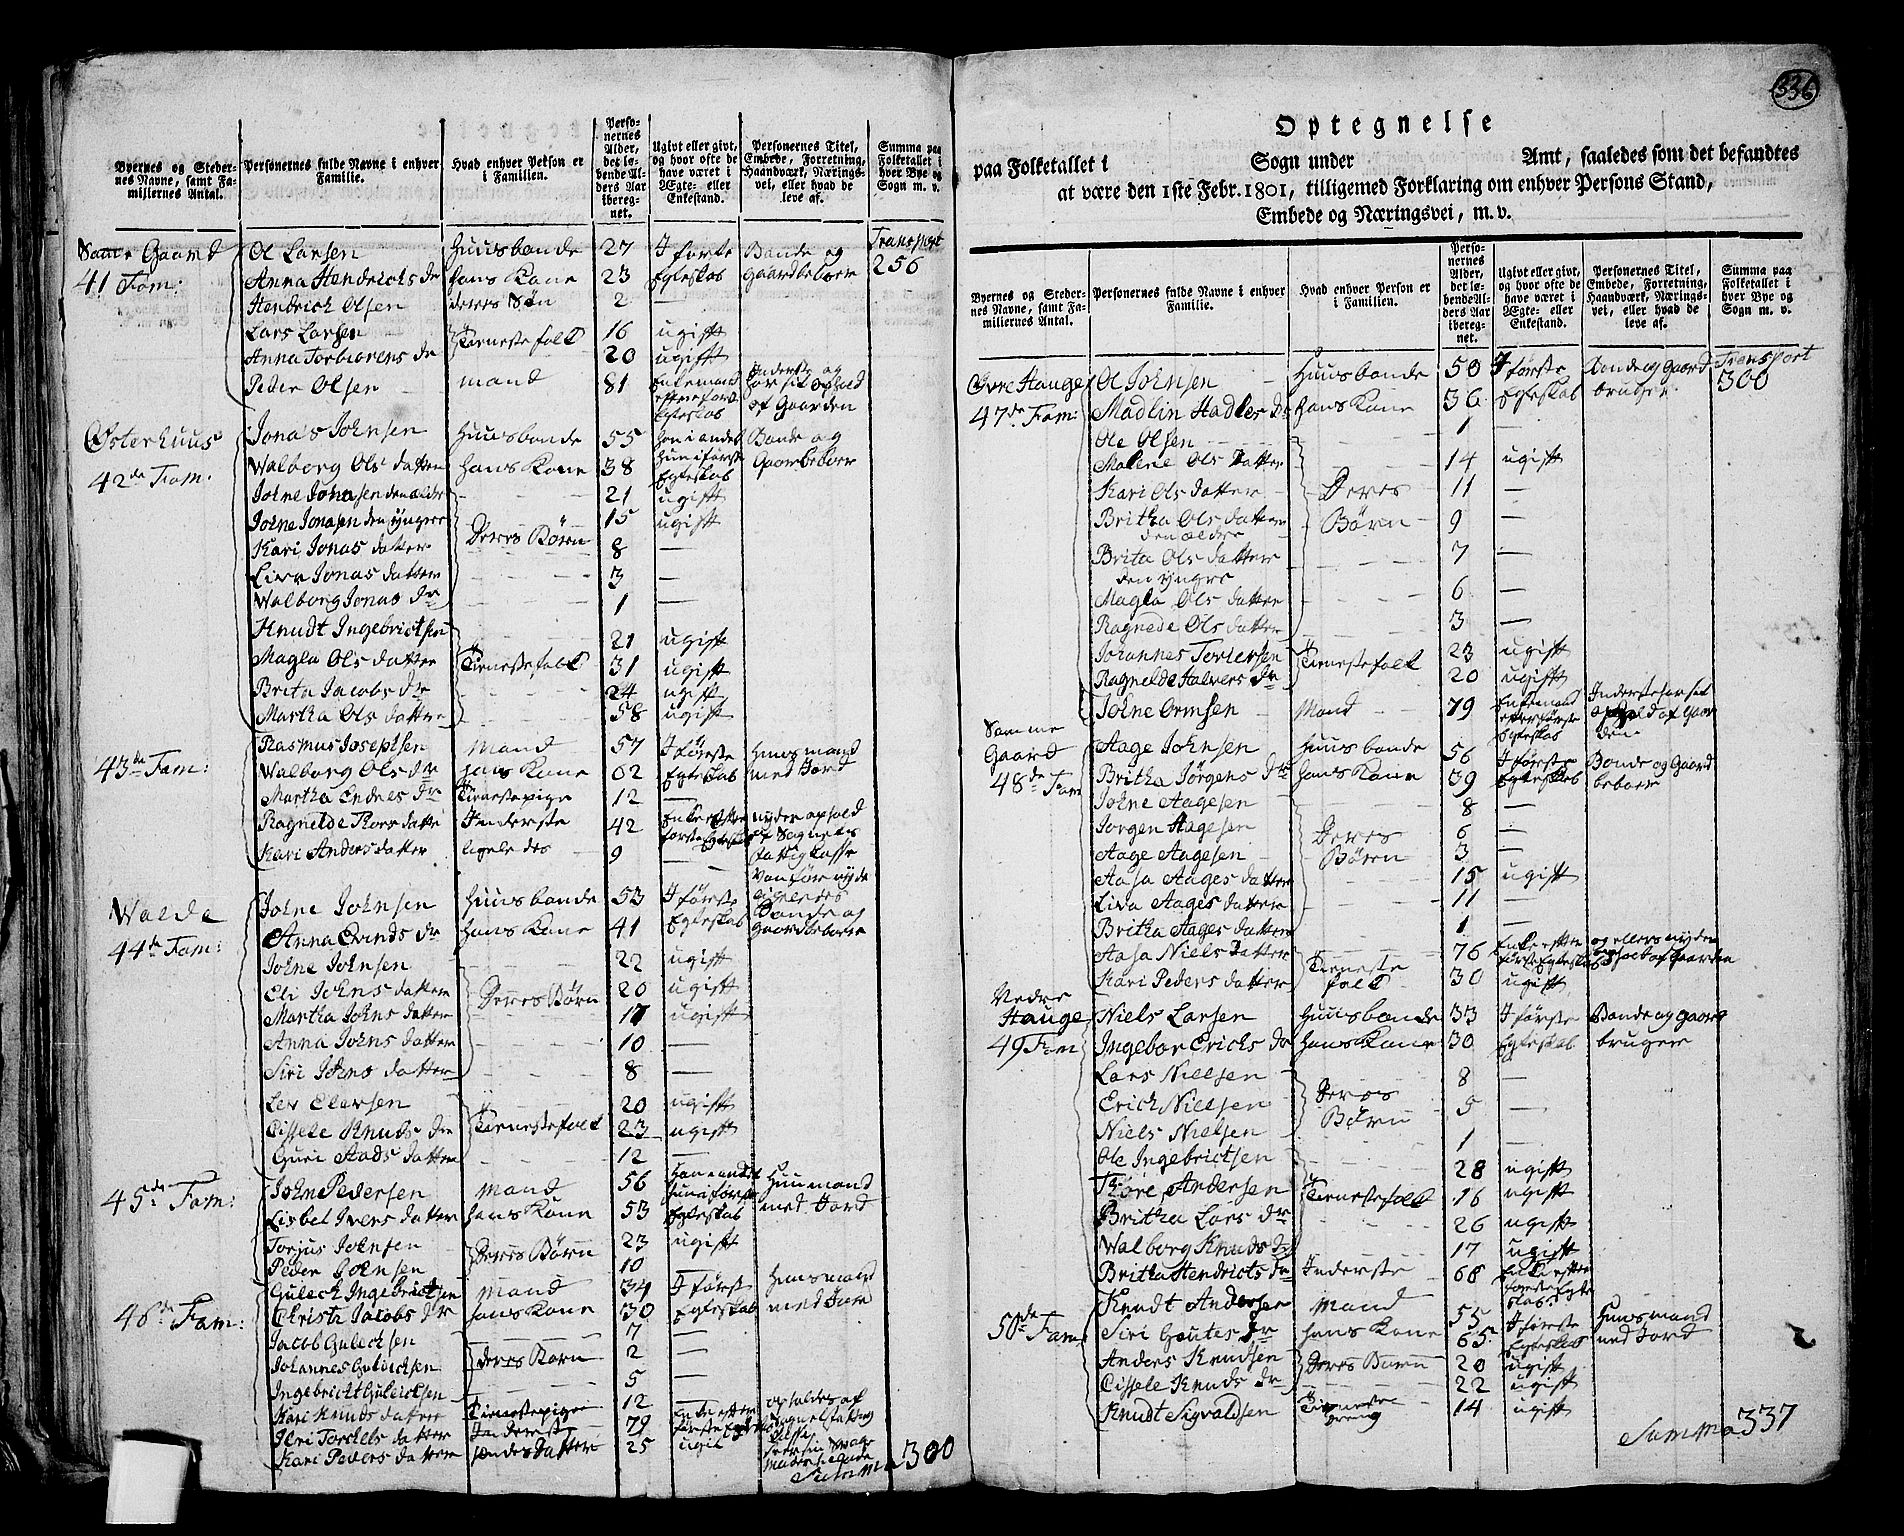 Byernes og Steder-
nes Navne, samt Fa-
miliernes Antal.
Personernes fulde Navne i enhver
Familie.
Hvad enhver Person er
i Familien.
Perso-
nernes
Alder,
det lø-
bende Al-
ders Aar
ibereg-
net.
Ugivt eller givt,
og hvor ofte de
have været i
Ægte- eller
Enkestand.
Personernes Titel,
Embede, Forretning,
Haandværk, Nærings-
vei, eller hvad de
leve af.
Summa paa
Folketallet i
hver Bye og
Sogn m. v.
Samme Gaard Ol Larsen Huusbonde 27 I første Bonde og Transport
41 Fam: Anna Hendrichs dr hans Kone 23 Egteskab Gaardbeboer 256
Hendrich Olsen deres Søn 2
Lars Larsen Tienestefolk 16 ugift
Anna Torbiørens dr 20 ugift
Peder Olsen mand 81 Enkemand Inderste og
efter første har sit ophold
Egteskab af Gaarden
Østerhuus Jonas Johnsen Huusbonde 55 han i andet Bonde og
42de Fam. Walborg Ols datter hans Kone 38 Hun i første Gaardbeboer
Egteskab
Johne Jonasen den ældre 21 ugift
Johne Jonasen den yngre 15 ugift
Kari Jonas datter Deres Børn 8 —
Liva Jonas datter 3 —
Walborg Jonas dr 1 —
Knudt Ingebrictsen 21 ugift
Magla Ols datter Tienestefolk 31 ugift
Brita Jacobs dr 24 ugift
Martha Ols datter 58 ugift
Rasmus Josephsen Mand 57 I første Huusmand
43de Fam: Walborg Ols dr hans Kone 62 Egteskab med Jord
Martha Endres dr Tienestepige 12 —
Ragnelde Thors datter Inderste 42 Enke efter nyder ophold
første Egteskab af Sognets
Kari Anders datter ligeledes 9 — Fattig Casse
Walde Johne Johnsen Huusbonde 53 I første
44de Fam: Anna Evinds dr hans Kone 41 Egteskab Bonde og
Gaardbeboer
Johne Johnsen 22 ugift
Eli Johns datter Deres Børn 20 ugift
Martha Johns datter 17 ugift
Anna Johns datter 10 —
Siri Johns datter 8 —
Lev Elevsen 20 ugift
Cissele Knuds dr Tienestefolk 23 ugift
Guri Aads datter 12 —
45de Fam: John Pedersen Mand 56 Han i andet Huusmand
Lisbet Ivers datter hans Kone 53 Hun i første med Jord
Egteskab
Torjus Johnsen Deres Børn 23 ugift
Peder Johnsen 10 —
Gulech Ingebrictsen Mand 34 I første Huusmand
46de Fam: Christi Jacobs dr hans Kone 30 Egteskab med Jord
Jacob Gulechsen 7 —
Johannes Gulechsen deres Børn 2 —
Ingebricht Gulechsen 5 —
Kari Knuds datter Tienestepige 12 —
Ilri Torchels datter Inderste 79 Enke efter opholdes af
første Egteskab
Kari Peders datter hendes datter 25 ugift
Summa 300
336
Optegnelse
paa Folketallet i Sogn under Amt, saaledes som det befandtes
at være den 1ste Febr. 1801, tilligemed Forklaring om enhver Persons Stand,
Embede og Næringsvei, m. v.
Byernes og Steder-
nes Navne, samt Fa-
miliernes Antal.
Personernes fulde Navne i enhver
Familie.
Hvad enhver Person er
i Familien.
Perso-
nernes
Alder,
det lø-
bende Al-
ders Aar
ibereg-
net.
Ugivt eller givt,
og hvor ofte de
have været i
Ægte- eller
Enkestand.
Personernes Titel,
Embede, Forretning,
Haandværk, Nærings-
vei, eller hvad de
leve af.
Summa paa
Folketallet i
hver Bye og
Sogn m. v.
Øvre Hauge Ol Johnsen Huusbonde 50 I første Bonde og Gaard Transport
47de Fam: Madlin Hadles dr hans Kone 36 Egteskab bruger 300
Ole Olsen 1 —
Malene Ols datter 14 ugift
Kari Ols datter Deres 11 —
Britha Ols datter Børn 9 —
den ældre
Brita Ols datter 7 —
den yngre
Magla Ols datter 6 —
Ragnede Ols datter 3 —
Johannes Torkersen Tienestefolk 23 ugift
Ragnelde Halvers dr 20 ugift
Johne Ormsen Mand 79 Enkemand Inderste har sit
efter første ophold af Gaar
Egteskab den
Samme
Gaard Aage Johnsen Huusbonde 56 I første Bonde og Gaard
48de Fam Britha Jørgens dr hans Kone 39 Egteskab beboer
Johne Aagesen 8 —
Jørgen Aagesen Deres 6 —
Aage Aagesen Børn 3 —
Aasa Aages datter 15 ugift
Liva Aages datter 11 —
Britha Aages datter 1 —
Aasa Niels datter 76 Enke efter og ellers nyder
første Egteskab ophold af Gaarden
Kari Peders datter Tieneste folk 30 ugift
Nedre
Hauge Niels Larsen Huusbonde 33 I første Bonde og Gaard
49 Fam Ingebor Erichs dr hans Kone 30 Egteskab bruger
Lars Nielsen 8 —
Erich Nielsen Deres Børn 5 —
Niels Nielsen 1 —
Ole Ingebrictsen 28 ugift
Thore Andersen Tienestefolk 16 ugift
Britha Lars dr 26 ugift
Walborg Knuds dr 17 ugift
Britha Hendrichs dr Inderste 68 Enke efter
første Egte
skab
Knudt Andersen Mand 55 I første Huusmand
50de Fam: Siri Goutes dr hans Kone 65 Egteskab med Jord
Anders Knudsen Deres Børn 20 ugift
Cissele Knuds dr 22 ugift
Knudt Sigvaldsen Tieneste dreng 14 ugift
Summa 337